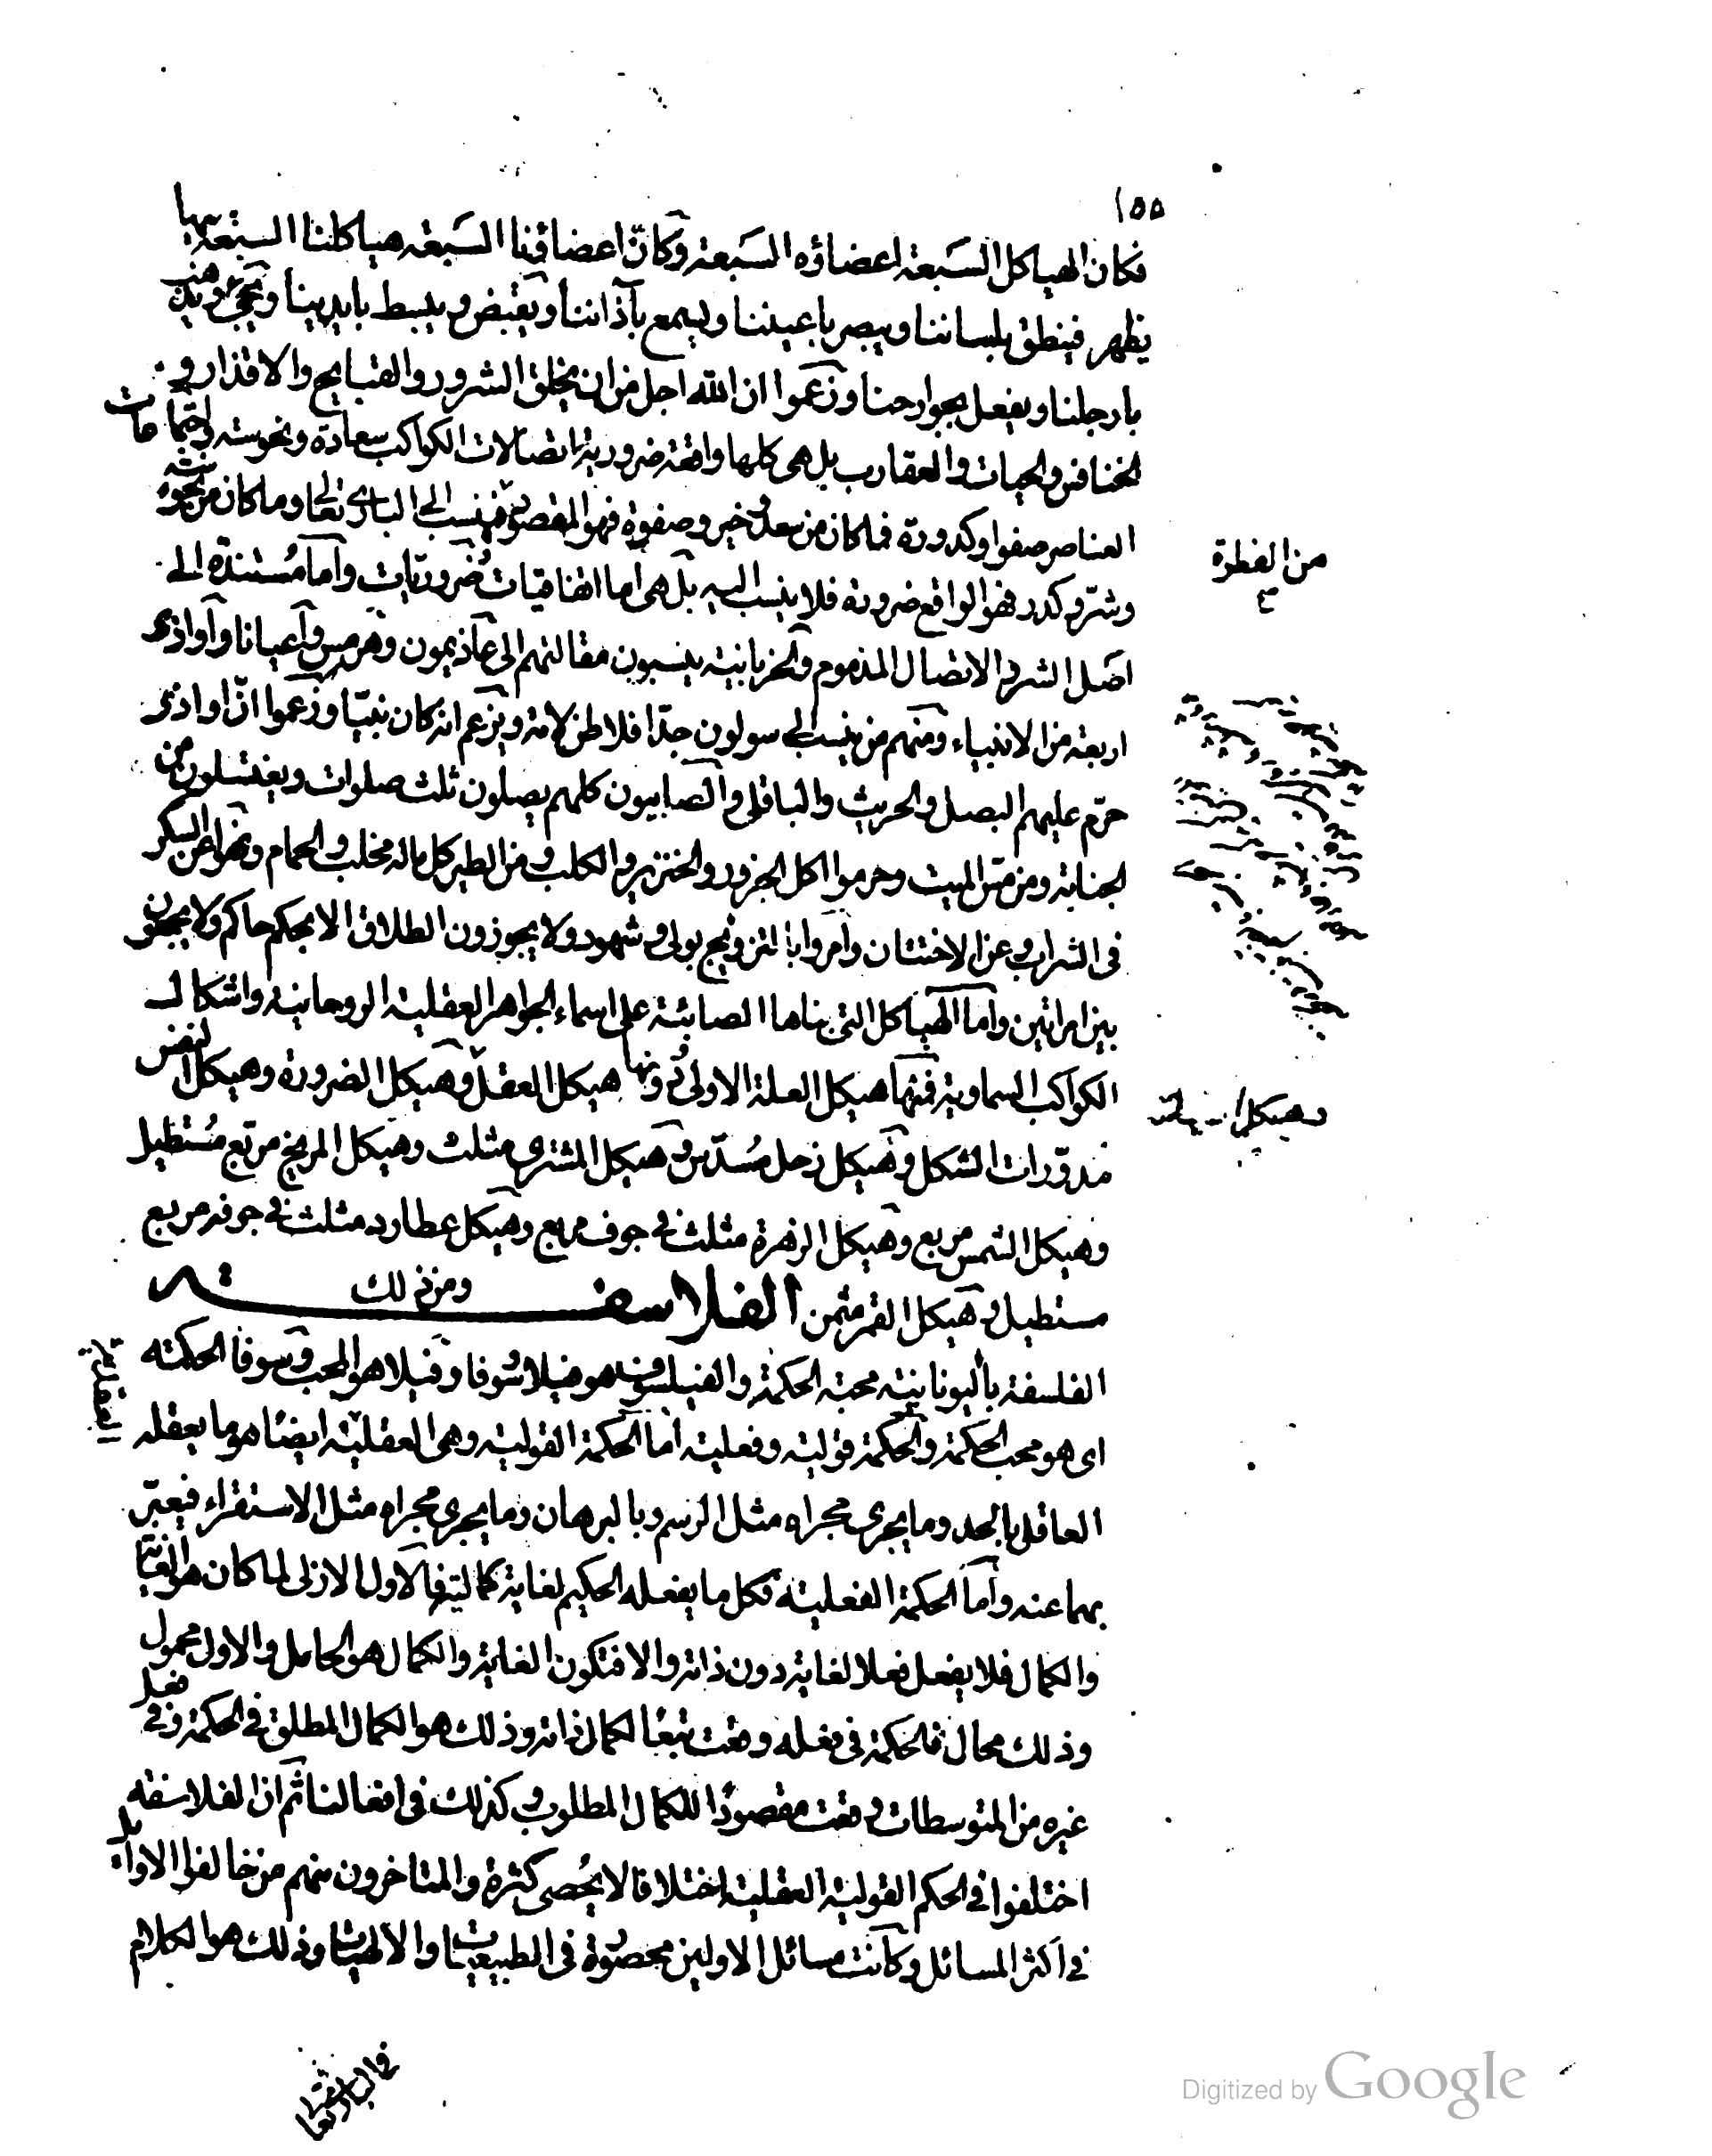 ١٥٥
فكان الهياكل السبعة اعضاؤه السبعة وكانّ اعضاؤنا السبعة هياكلنا السبعة بها
يظهر فينطق بلساننا ويبصر باعيننا ويسمع بآذاننا ويقبض ويبسط بايدينا ويجئ ويذهب
بارجلنا ويفعل بجوارحنا وزعموا ان الله اجل من ان يخلق الشرور والقبايح والاقذار و
الخنافس والحيات والعقارب بل هى كلها واقعة ضرورية اتصالات الكواكب سعادة ونحوسة واجتماعات
العناصر صفوا وكدورة فما كان من سعد وخير وصفوة فهو المقصود فينسب الى البارى تعالى وما كان من نحوسة
وشرّ وكدر فهو الواقع ضرورة فلا ينسب اليه بل هى اما اتفاقيات ضروريات واما مستندة الى
اصل الشرور والاتصال المذموم والحربانية ينسبون مقالتهم الى عاذيمون وهرمس واعيانا واواذى
اربعة من الانبياء ومنهم من ينسب الى سولون جدّ افلاطن لامه ويزعم انه كان نبيّا وزعموا انّ اواذى
حرّم عليهم البصل والجريث والباقلى والصابيون كلهم يصلون ثلث صلوات ويغتسلون من
الجنابة ومن مسّ الميت وحرموا اكل الجزور والخنزير والكلب ومن الطير كل ماله مخلب والحمام ونهوا عن السكر
فى الشراب وعن الاختتان وامروا بالتزويج بولى وشهود ولا يجوزون الطلاق الا بحكم حاكم ولا يجمعون
بين امراتين واما الهياكل التى بناها الصابئة على اسماء الجواهر العقلية الروحانية واشكال
الكواكب السماوية فمنها هيكل العلة الاولى ودونها هيكل العقل وهيكل الضرورة وهيكل النفس
مدوّرات الشكل وهيكل زحل مسدّس وهيكل المشترى مثلث وهيكل المريخ مربع مستطيل
وهيكل الشمس مربع وهيكل الزهرة مثلث فى جوف مربع وهيكل عطارد مثلث فى جوفه مربع
مستطيل وهيكل القمر مثمن الفلاسفة ومن ذلك
الفلسفة باليونانية محبة الحكمة والفيلسوف هو فيلا سُوفا وفيلا هو المحب وسوفا الحكمة
اى هو محب الحكمة والحكمة قولية وفعلية اما الحكمة القولية وهى العقلية ايضا هو ما يعقله
العاقل بالحد وما يجرى مجراه مثل الرسم وبالبرهان وما يجرى مجراه مثل الاستقراء فيعبّر
بهما عنه واما الحكمة الفعلية فكل ما يفعله الحكيم لغاية كمالية فالاول الازلى لما كان هو الغاية
والكمال فلا يفعل فعلا لغاية دون ذاته والا فتكون الغاية والكمال هو الحامل والاول محمول
وذلك محال فالحكمة فى فعله وقعت تبعًا لكمال ذاته وذلك هو الكمال المطلق فى الحكمة وفى فعل
غيره من المتوسطات وقعت مقصودًا للكمال المطلوب وكذلك فى افعالنا ثم ان الفلاسفه
اختلفوا فى الحكم القولية العقلية اختلافا لا يُحصى كثرة والمتاخرون منهم من خالفوا الاوايل
فى اكثر المسائل وكانت مسائل الاولين محصورة فى الطبيعيات والالهيات وذلك هو الكلام
من الفطرة
وهيكل
Digitized by Google